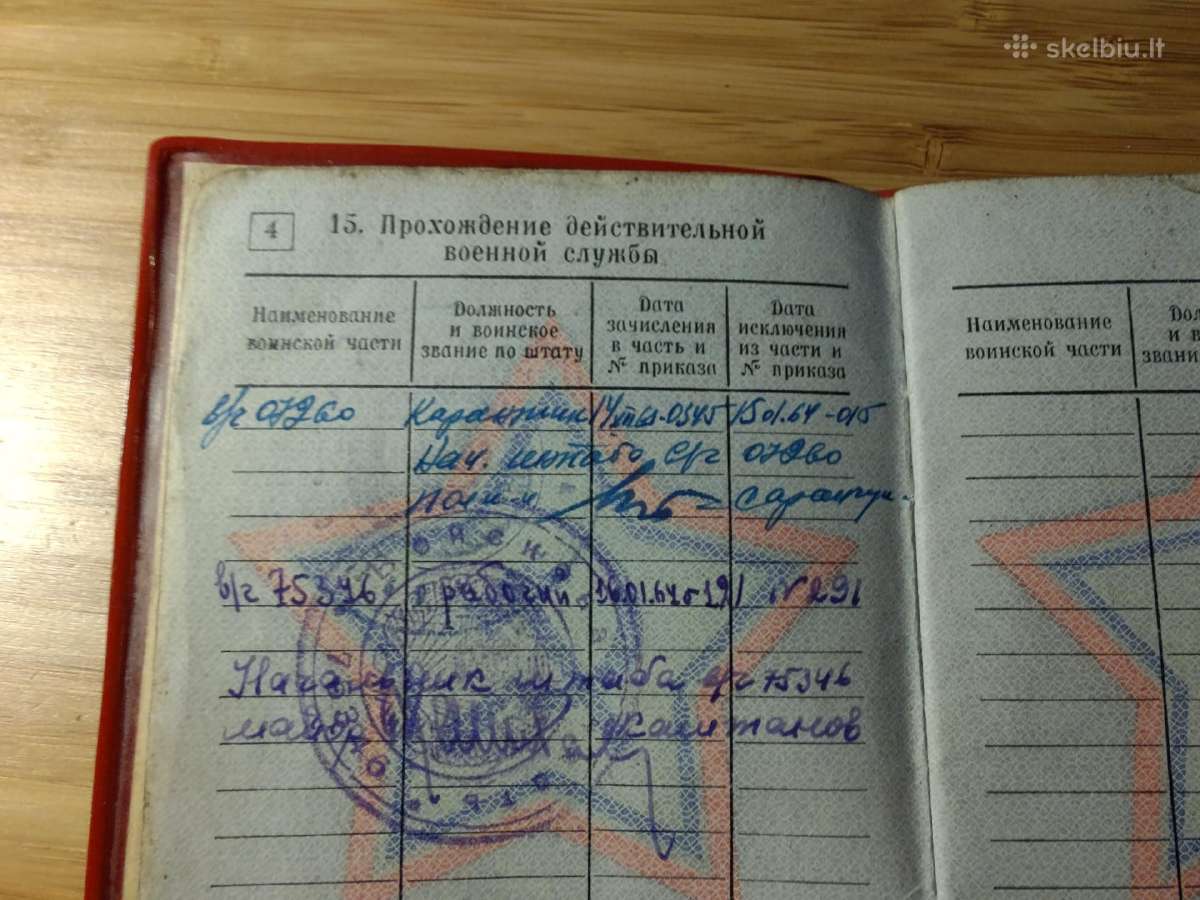 skelbiu.lt
4
15. Прохождение действительной
военной службы
Наименование
воинской части
Должность
и воинское
звание по штату
Дата
зачисления
в часть и
№ приказа
Дата
исключения
из части и
№ приказа
в/ч 07260 Карантин 15.01.64-015
Нач. штаба в/ч 07260
в/ч 75346 рабочий №291
Начальник штаба в/ч 75346
майор Каштанов
Наименование
воинской части